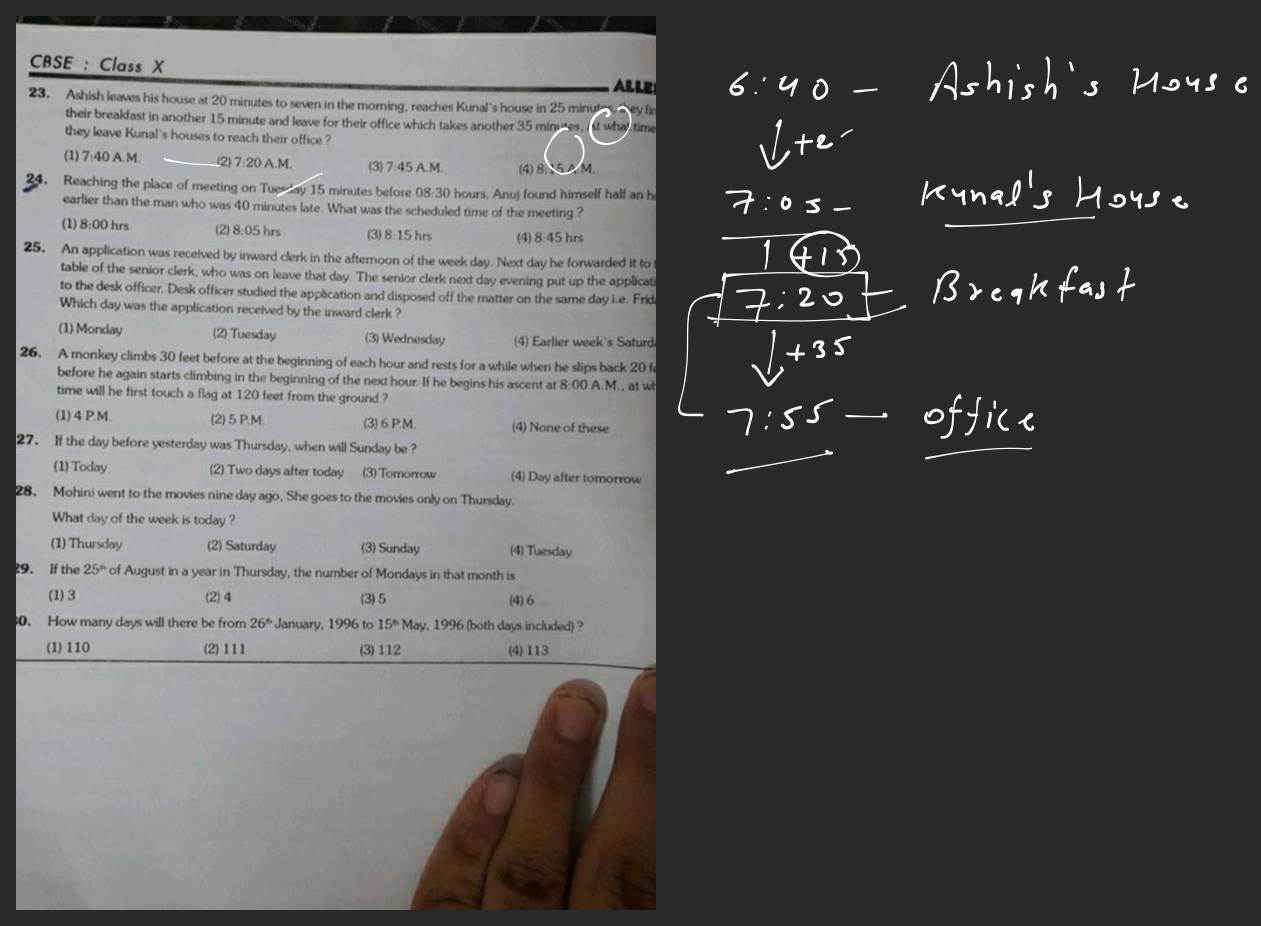 CBSE : Class X
ALLE
23. Ashish leaves his house at 20 minutes to seven in the morning, reaches Kunal's house in 25 minutes, they fin
their breakfast in another 15 minute and leave for their office which takes another 35 minutes. At what time
they leave Kunal's houses to reach their office ?
(1) 7:40 A.M. (2) 7:20 A.M. (3) 7:45 A.M. (4) 8:15 A.M.
24. Reaching the place of meeting on Tuesday 15 minutes before 08:30 hours, Anuj found himself half an h
earlier than the man who was 40 minutes late. What was the scheduled time of the meeting ?
(1) 8:00 hrs (2) 8:05 hrs (3) 8:15 hrs (4) 8:45 hrs
25. An application was received by inward clerk in the afternoon of the week day. Next day he forwarded it to
table of the senior clerk, who was on leave that day. The senior clerk next day evening put up the applicati
to the desk officer. Desk officer studied the application and disposed off the matter on the same day i.e. Frid
Which day was the application received by the inward clerk ?
(1) Monday (2) Tuesday (3) Wednesday (4) Earlier week's Saturd
26. A monkey climbs 30 feet before at the beginning of each hour and rests for a while when he slips back 20 f
before he again starts climbing in the beginning of the next hour. If he begins his ascent at 8:00 A.M., at wh
time will he first touch a flag at 120 feet from the ground ?
(1) 4 P.M. (2) 5 P.M. (3) 6 P.M. (4) None of these
27. If the day before yesterday was Thursday, when will Sunday be ?
(1) Today (2) Two days after today (3) Tomorrow (4) Day after tomorrow
28. Mohini went to the movies nine day ago, She goes to the movies only on Thursday.
What day of the week is today ?
(1) Thursday (2) Saturday (3) Sunday (4) Tuesday
29. If the 25th of August in a year in Thursday, the number of Mondays in that month is
(1) 3 (2) 4 (3) 5 (4) 6
0. How many days will there be from 26th January, 1996 to 15th May, 1996 (both days included) ?
(1) 110 (2) 111 (3) 112 (4) 113
6:40 — Ashish's House
7:05 — Kunal's House
+15
7:20 — Breakfast
+35
7:55 — office